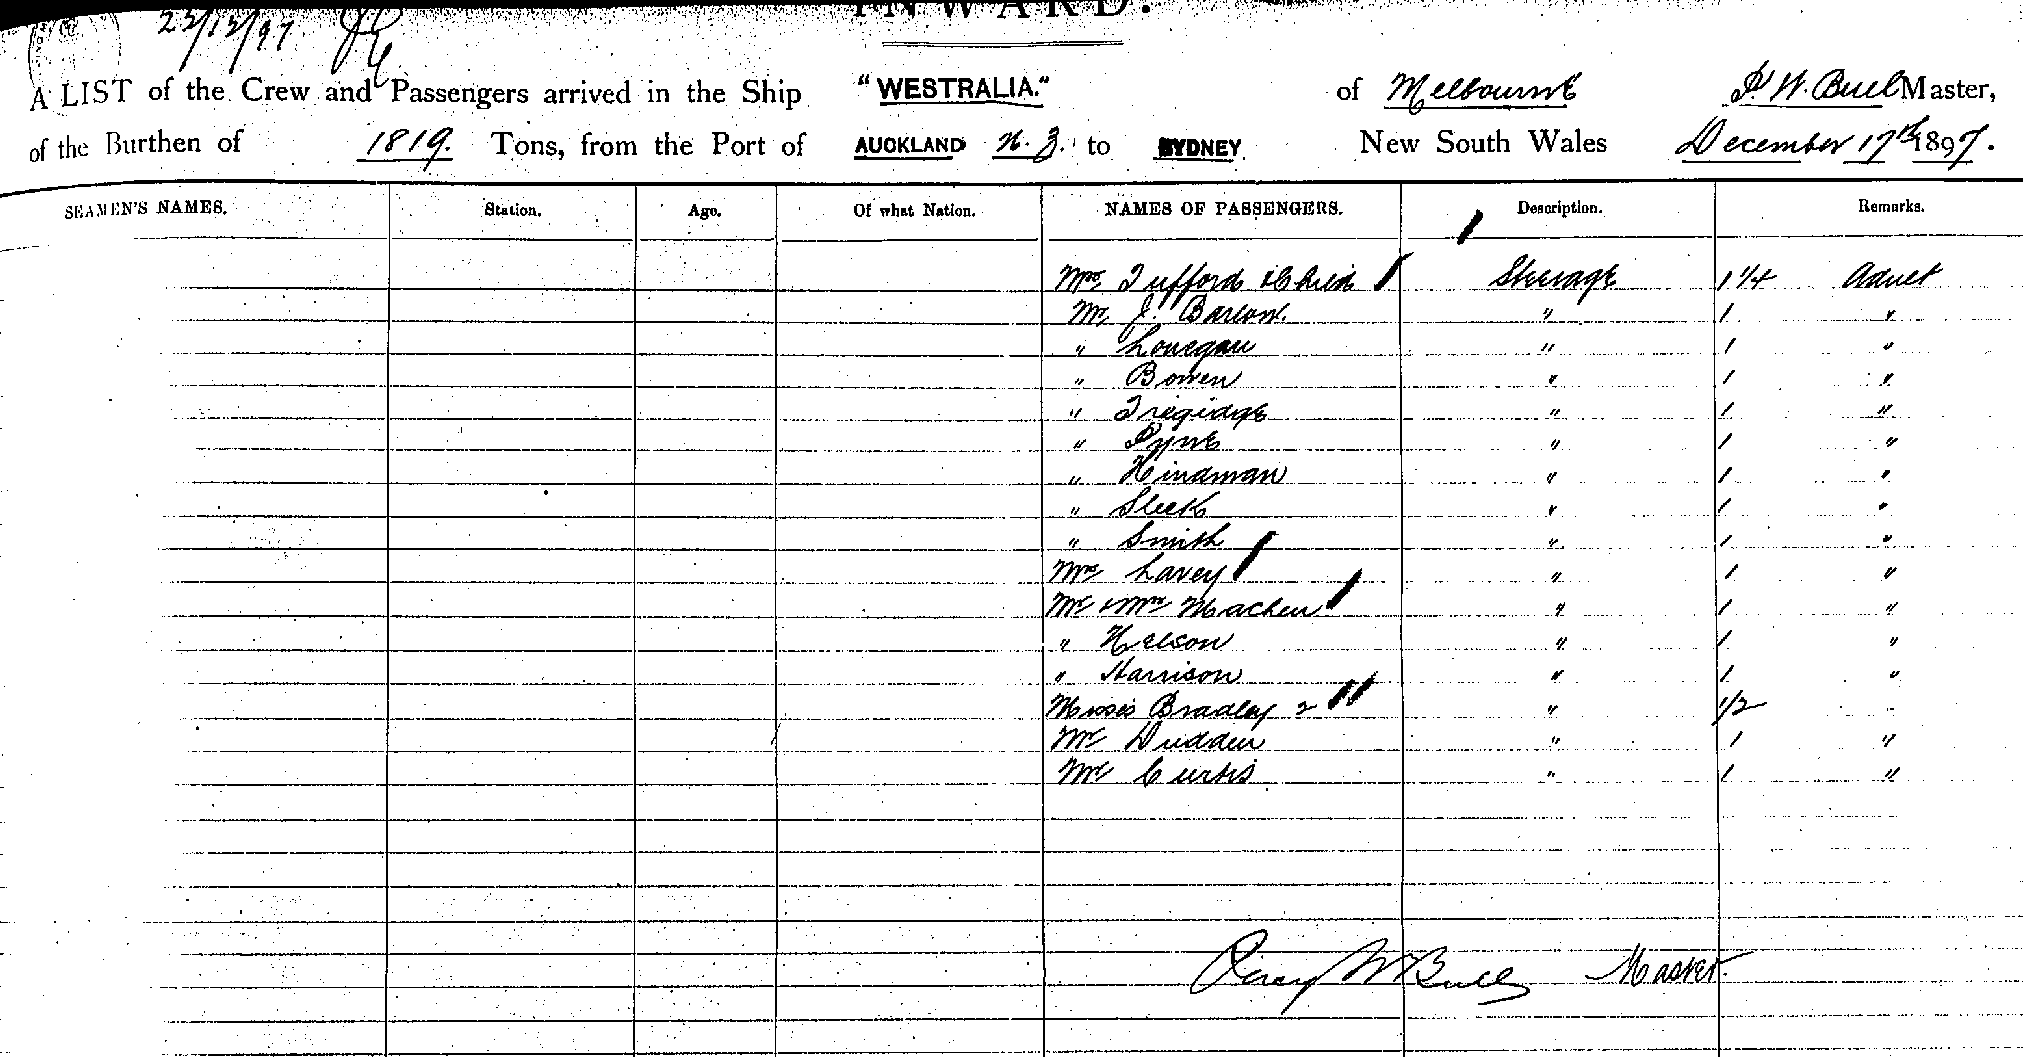 INWARD.
22/12/97
A LIST of the Crew and Passengers arrived in the Ship "WESTRALIA." of Melbourne P. W. Bull Master,
of the Burthen of 1819. Tons, from the Port of AUCKLAND N. Z. to SYDNEY New South Wales December 17th 1897.
SEAMEN'S NAMES. Station. Age. Of what Nation. NAMES OF PASSENGERS. Description. Remarks.
Mrs Tufford & Child Steerage 1 1/4 Adult
Mr J. Barlow. " 1 "
" Lonegan " 1 "
" Bowen " 1 "
" Tregidge " 1 "
" Pyne " 1 "
" Hindman " 1 "
" Sleek " 1 "
" Smith " 1 "
Mrs Lavey " 1 "
Mr & Mrs Machen " 1 "
" Nelson " 1 "
" Harrison " 1 "
Misses Bradley 2 " 1/2
Mr Dudden " 1 "
Mr Curtis " 1 "
Percy W Bull Master.